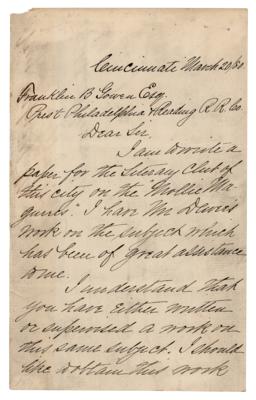 Cincinnati March 20/80
Franklin B Gowen Esq.
Prest Philadelphia & Reading R. R. Co.
Dear Sir,
I am to write a
paper for the Literary Club of
this city on the "Mollie Ma-
guires". I have Mr Dewee's
work on the subject which
has been of great assistance
to me.
I understand that
you have either written
or supervised a work on
this same subject. I should
like to obtain this work